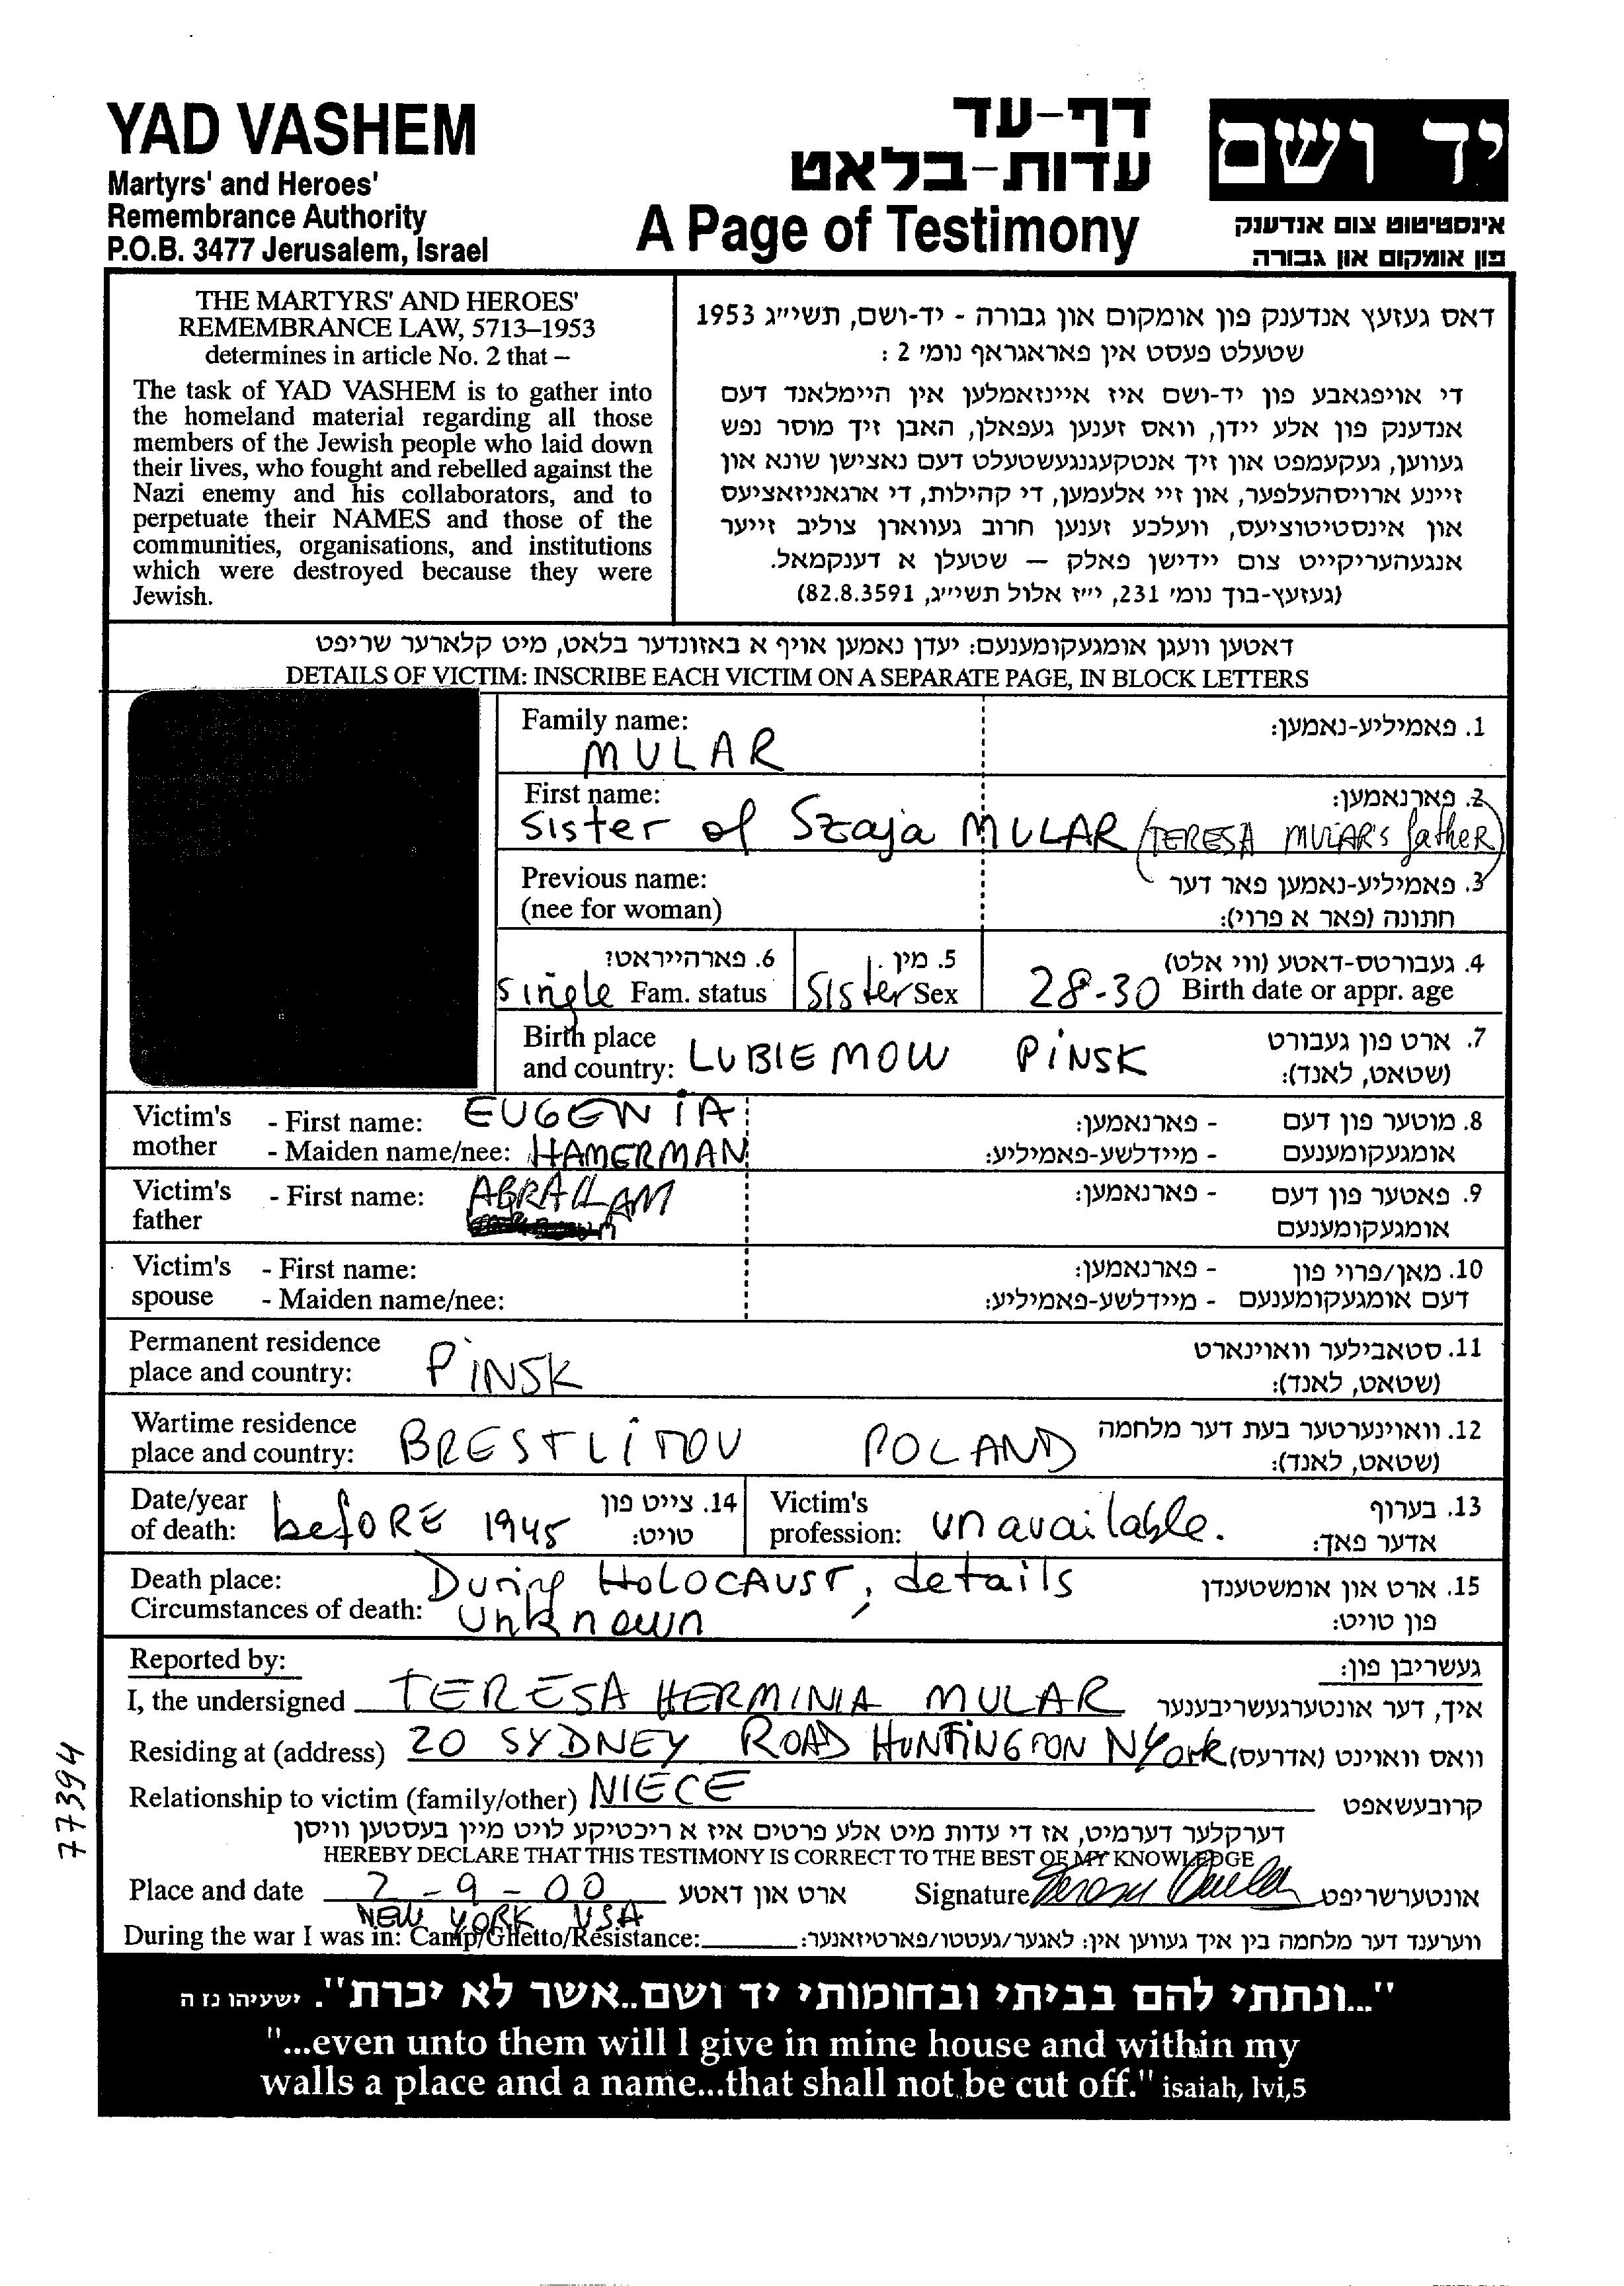 YAD VASHEM
Martyrs' and Heroes'
Remembrance Authority
P.O.B. 3477 Jerusalem, Israel
דף-עד
עדות-בלאט
A Page of Testimony
יד ושם
אינסטיטוט צום אנדענק
פון אומקום און גבורה
THE MARTYRS' AND HEROES'
REMEMBRANCE LAW, 5713–1953
determines in article No. 2 that –
The task of YAD VASHEM is to gather into
the homeland material regarding all those
members of the Jewish people who laid down
their lives, who fought and rebelled against the
Nazi enemy and his collaborators, and to
perpetuate their NAMES and those of the
communities, organisations, and institutions
which were destroyed because they were
Jewish.
דאס געזעץ אנדענק פון אומקום און גבורה - יד-ושם, תשי״ג 1953
שטעלט פעסט אין פאראגראף נומ׳ 2 :
די אויפגאבע פון יד-ושם איז איינזאמלען אין היימלאנד דעם
אנדענק פון אלע יידן, וואס זענען געפאלן, האבן זיך מוסר נפש
געווען, געקעמפט און זיך אנטקעגנגעשטעלט דעם נאצישן שונא און
זיינע ארויסהעלפער, און זיי אלעמען, די קהילות, די ארגאניזאציעס
און אינסטיטוציעס, וועלכע זענען חרוב געווארן צוליב זייער
אנגעהעריקייט צום יידישן פאלק — שטעלן א דענקמאל.
(געזעץ-בוך נומ׳ 231, י״ז אלול תשי״ג, 82.8.3591)
דאטען וועגן אומגעקומענעם: יעדן נאמען אויף א באזונדער בלאט, מיט קלארער שריפט
DETAILS OF VICTIM: INSCRIBE EACH VICTIM ON A SEPARATE PAGE, IN BLOCK LETTERS
Family name: 1. פאמיליע-נאמען:
MULAR
First name: 2. פארנאמען:
Sister of Szaja MULAR (TERESA MULAR's father)
Previous name: 3. פאמיליע-נאמען פאר דער
(nee for woman) חתונה (פאר א פרוי):
6. פארהייראט? 5. מין 4. געבורטס-דאטע (ווי אלט)
single Fam. status Sister Sex 28-30 Birth date or appr. age
Birth place 7. ארט פון געבורט
and country: LUBIEMOW PINSK (שטאט, לאנד):
Victim's - First name: EUGENIA - פארנאמען: 8. מוטער פון דעם
mother - Maiden name/nee: HAMERMAN - מיידלשע-פאמיליע: אומגעקומענעם
Victim's - First name: ABRAHAM - פארנאמען: 9. פאטער פון דעם
father אומגעקומענעם
Victim's - First name: - פארנאמען: 10. מאן/פרוי פון
spouse - Maiden name/nee: - מיידלשע-פאמיליע: דעם אומגעקומענעם
Permanent residence 11. סטאבילער וואוינארט
place and country: PINSK (שטאט, לאנד):
Wartime residence 12. וואוינערטער בעת דער מלחמה
place and country: BRESTLITOV POLAND (שטאט, לאנד):
Date/year 14. צייט פון Victim's 13. בערוף
of death: before 1945 טויט: profession: unavailable. אדער פאך:
Death place: During HOLOCAUST, details 15. ארט און אומשטענדן
Circumstances of death: Unknown פון טויט:
Reported by: געשריבן פון:
I, the undersigned TERESA HERMINIA MULAR איך, דער אונטערגעשריבענער
Residing at (address) 20 SYDNEY ROAD HUNTINGTON NYork וואס וואוינט (אדרעס)
Relationship to victim (family/other) NIECE קרובעשאפט
דערקלער דערמיט, אז די עדות מיט אלע פרטים איז א ריכטיקע לויט מיין בעסטען וויסן
HEREBY DECLARE THAT THIS TESTIMONY IS CORRECT TO THE BEST OF MY KNOWLEDGE
Place and date 2-9-00 ארט און דאטע Signature Teresa Mular אונטערשריפט
NEW YORK USA
During the war I was in: Camp/Ghetto/Resistance: ווערענד דער מלחמה בין איך געווען אין: לאגער/געטטו/פארטיזאנער:
77394
"...ונתתי להם בביתי ובחומותי יד ושם..אשר לא יכרת". ישעיהו נז ה
"...even unto them will I give in mine house and within my
walls a place and a name...that shall not be cut off." isaiah, lvi,5